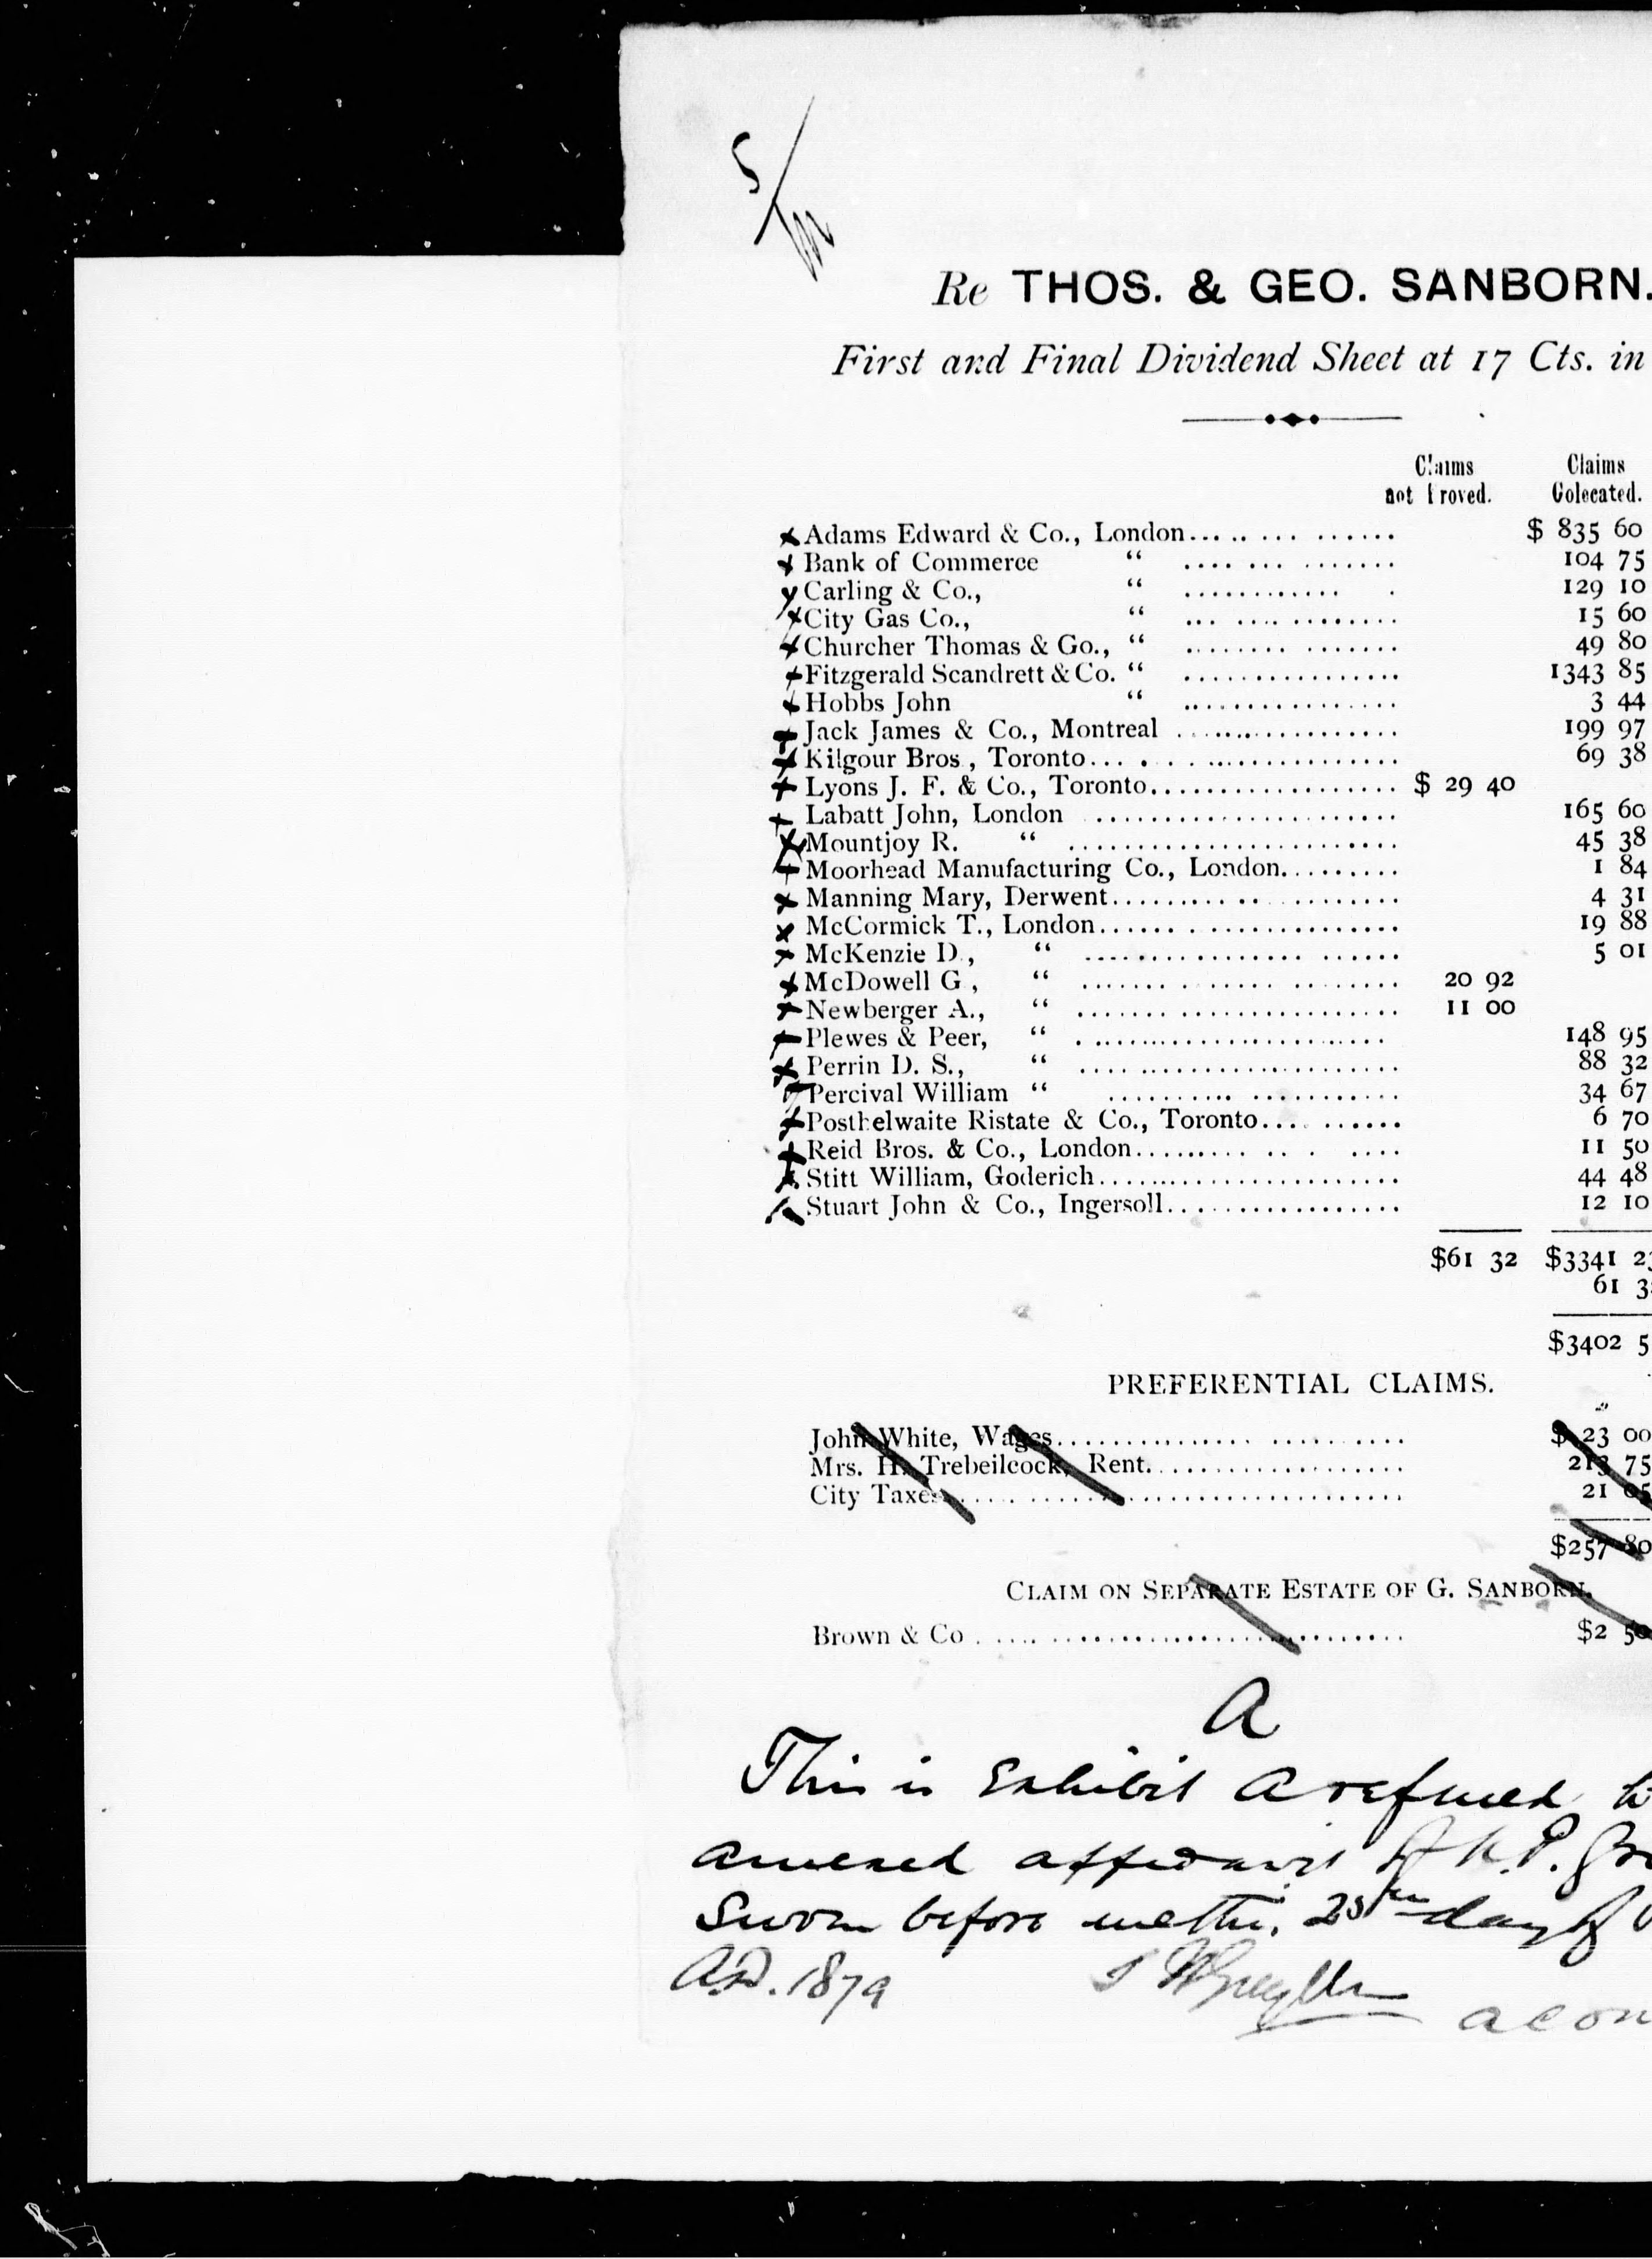 5/m
Re THOS. & GEO. SANBORN.
First and Final Dividend Sheet at 17 Cts. in
Claims not Proved. Claims Colocated.
Adams Edward & Co., London........ ... ...... $ 835 60
Bank of Commerce “ .... ... ....... 104 75
Carling & Co., “ ............ . 129 10
City Gas Co., “ ... .... ........ 15 60
Churcher Thomas & Go., “ ........ ....... 49 80
Fitzgerald Scandrett & Co. “ ................ 1343 85
Hobbs John “ ................ 3 44
Jack James & Co., Montreal ................ 199 97
Kilgour Bros., Toronto... . . ................ 69 38
Lyons J. F. & Co., Toronto.................. $ 29 40
Labatt John, London ...................... 165 60
Mountjoy R. “ ........................ 45 38
Moorhead Manufacturing Co., London......... 1 84
Manning Mary, Derwent...................... 4 31
McCormick T., London....... ............... 19 88
McKenzie D., “ ................ ...... 5 01
McDowell G., “ ....... ....... ........ 20 92
Newberger A., “ ....... ................ 11 00
Plewes & Peer, “ ...................... 148 95
Perrin D. S., “ .... .................. 88 32
Percival William “ .......... ........... 34 67
Posthelwaite Ristate & Co., Toronto.... ...... 6 70
Reid Bros. & Co., London......... .. . .... 11 50
Stitt William, Goderich...................... 44 48
Stuart John & Co., Ingersoll................. 12 10
$61 32 $3341 23
61 3
$3402 5
PREFERENTIAL CLAIMS.
John White, Wages................ .... .... $ 23 00
Mrs. H. Trebeilcock, Rent.................. 213 75
City Taxes...... .......................... 21 05
$257 80
CLAIM ON SEPARATE ESTATE OF G. SANBORN.
Brown & Co ..... .......................... $2 50
A
This is Exhibit A referred to
annexed affidavit of
Sworn before me this 25th day of
A.D. 1879
a com